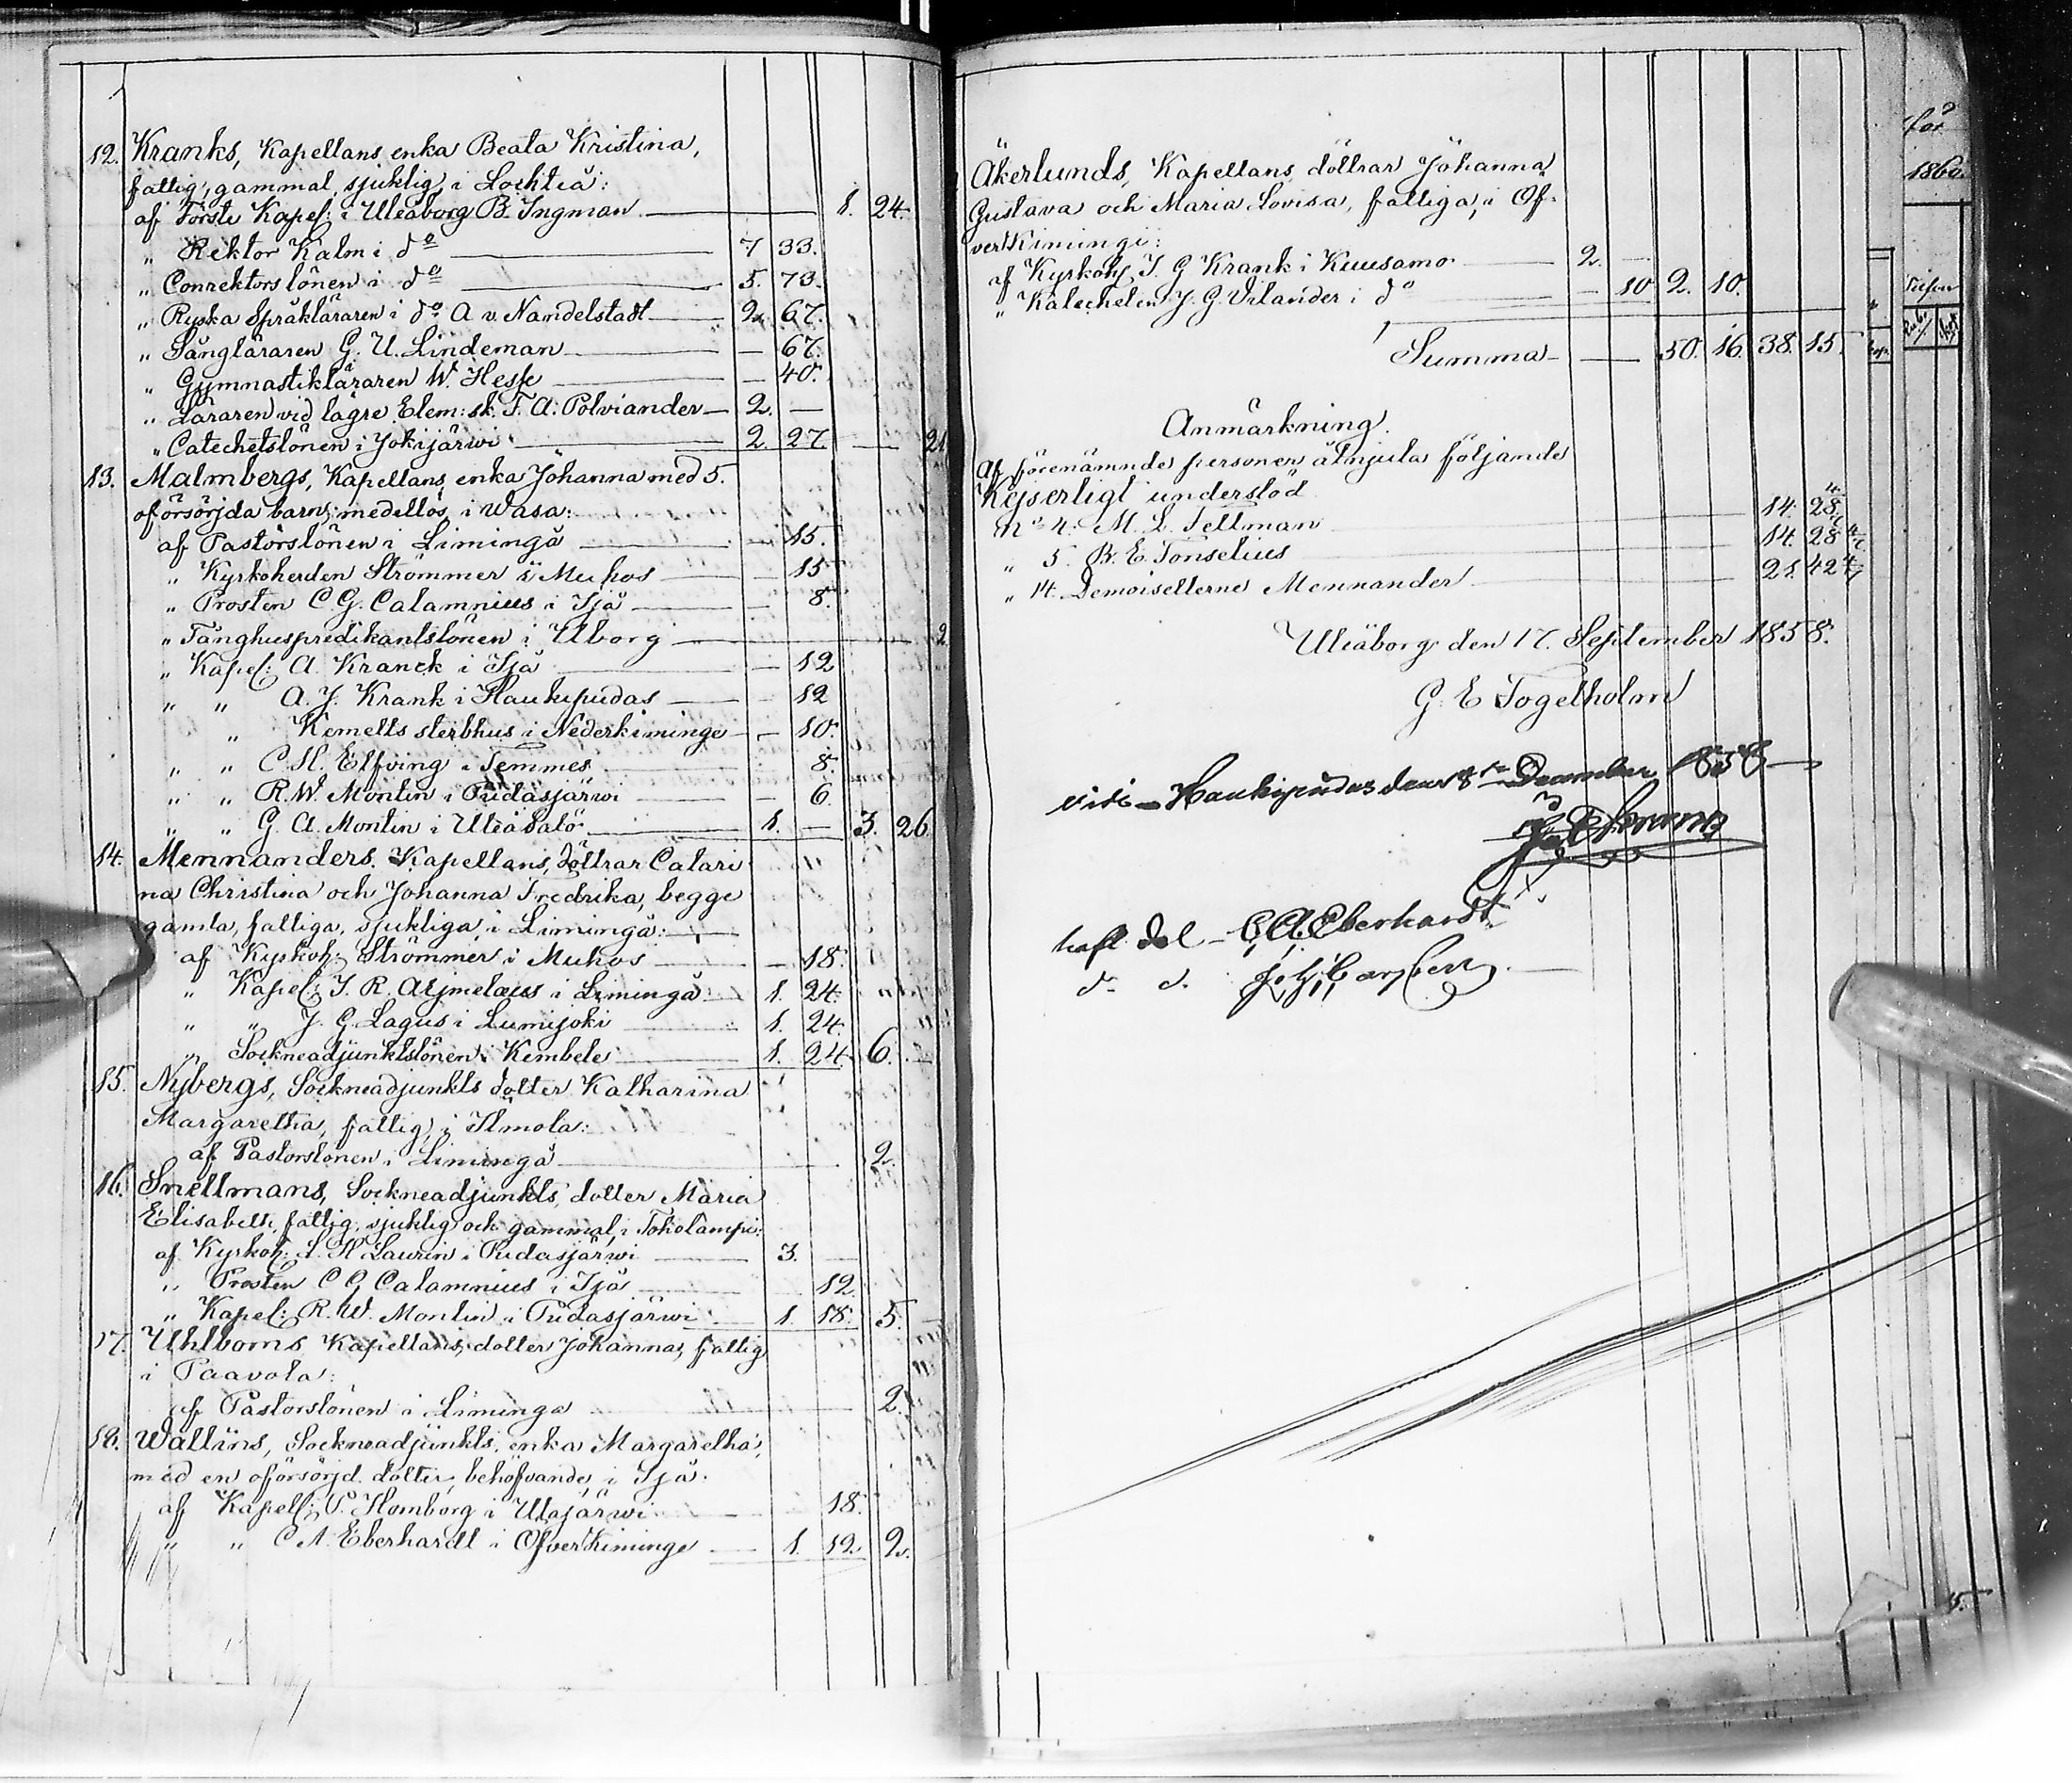 12. Kranks, Kapellans enka Beata Kristina,
fattig, gammal, sjuklig, i Lochteå:
af Förste Kapel: i Uleåborg B. Ingman — 1. 24.
„ Rektor Kalm i do — 7 33.
„ Conrektorslönen i do — 5. 73.
„ Ryska Språkläraren i do A v. Nandelstadt — 2. 67.
„ Sångläraren G. U. Lindeman — 67.
„ Gymnastikläraren W. Hesse — 40.
„ Läraren vid lägre Elem: sk. F. A. Polviander — 2. —
„ Catechetslönen i Jokijärwi — 2. 27. — 21
13. Malmbergs, Kapellans enka Johanna med 5.
oförsörjda barn, medellös, i Wasa:
af Pastorslönen i Limingå — 15.
„ Kyrkoherden Strömmer i Muhos — 15
„ Prosten C. G. Calamnius i Ijå — 8.
„ Fånghuspredikantslönen i Uborg — 2
„ Kapel: A. Kranck i Ijå — 12
„ „ A. J. Krank i Haukipudas — 12
„ Kemells sterbhus i Nederkiminge — 10.
„ „ C. H. Elfving i Temmes — 8.
„ „ R. W. Montin i Pudasjärwi — 6.
„ „ G. A. Montin i Uleåsalo — 1. — 3. 26
14. Mennanders, Kapellans, döttrar Catari
na Christina och Johanna Fredrika, begge
gamla, fattiga, sjukliga, i Limingå:
af Kyrkoh: Strömmer i Muhos — 18.
„ Kapel: J. R. Aejmelæus i Limingå — 1. 24.
„ „ J. G. Lagus i Lumijoki — 1. 24.
„ Sockneadjunktslönen i Kembele — 1. 24. 6.
15. Nybergs, Sockneadjunkts dotter Katharina
Margaretha, fattig, i Ilmola:
af Pastorslönen i Limingå — 2.
16. Snellmans, Sockneadjunkts, dotter Maria
Elisabeth, fattig, sjuklig och gammal, i Toholampi:
af Kyrkoh: L. H. Laurin i Pudasjärwi — 3. —
„ Prosten C G Calamnius i Ijå — 12.
„ Kapel: R. W. Montin i Pudasjärwi — 1. 18. 5.
17. Uhlboms Kapellans, dotter Johanna, fattig
i Paavola:
af Pastorslönen i Liminga — 2.
18. Wallins, Sockneadjunkts, enka Margaretha,
med en oförsörjd dotter, behöfvande, i Ijå.
af Kapell: P. Homborg i Utajärwi — 18.
„ „ C A. Eberhardt i Öfverkiminge — 1. 12. 2.
Åkerlunds, Kapellans döttrar Johanna
Gustava och Maria Lovisa, fattiga, i Öf-
verkiminge:
af Kyrkoh: J. G Krank i Kuusamo — 2. —
„ Katecheten J. G. Vilander i do — 10 2. 10.
Summa — 50. 16. 38. 15.
Anmärkning.
Af förenämnde personer åtnjuta följande
Kejserligt understöd
No 4. M. L. Tellman 14. 28 4/7
„ 5. B. E. Fonselius 14. 28 4/7
„ 14. Demoisellerne Mennander 21. 42 4/7
Uleåborg den 17. September 1858.
G. E Fogelholm
Haukipudas den 8 December 1858
haft del C. A. Eberhardt
d. d.
för
1860.